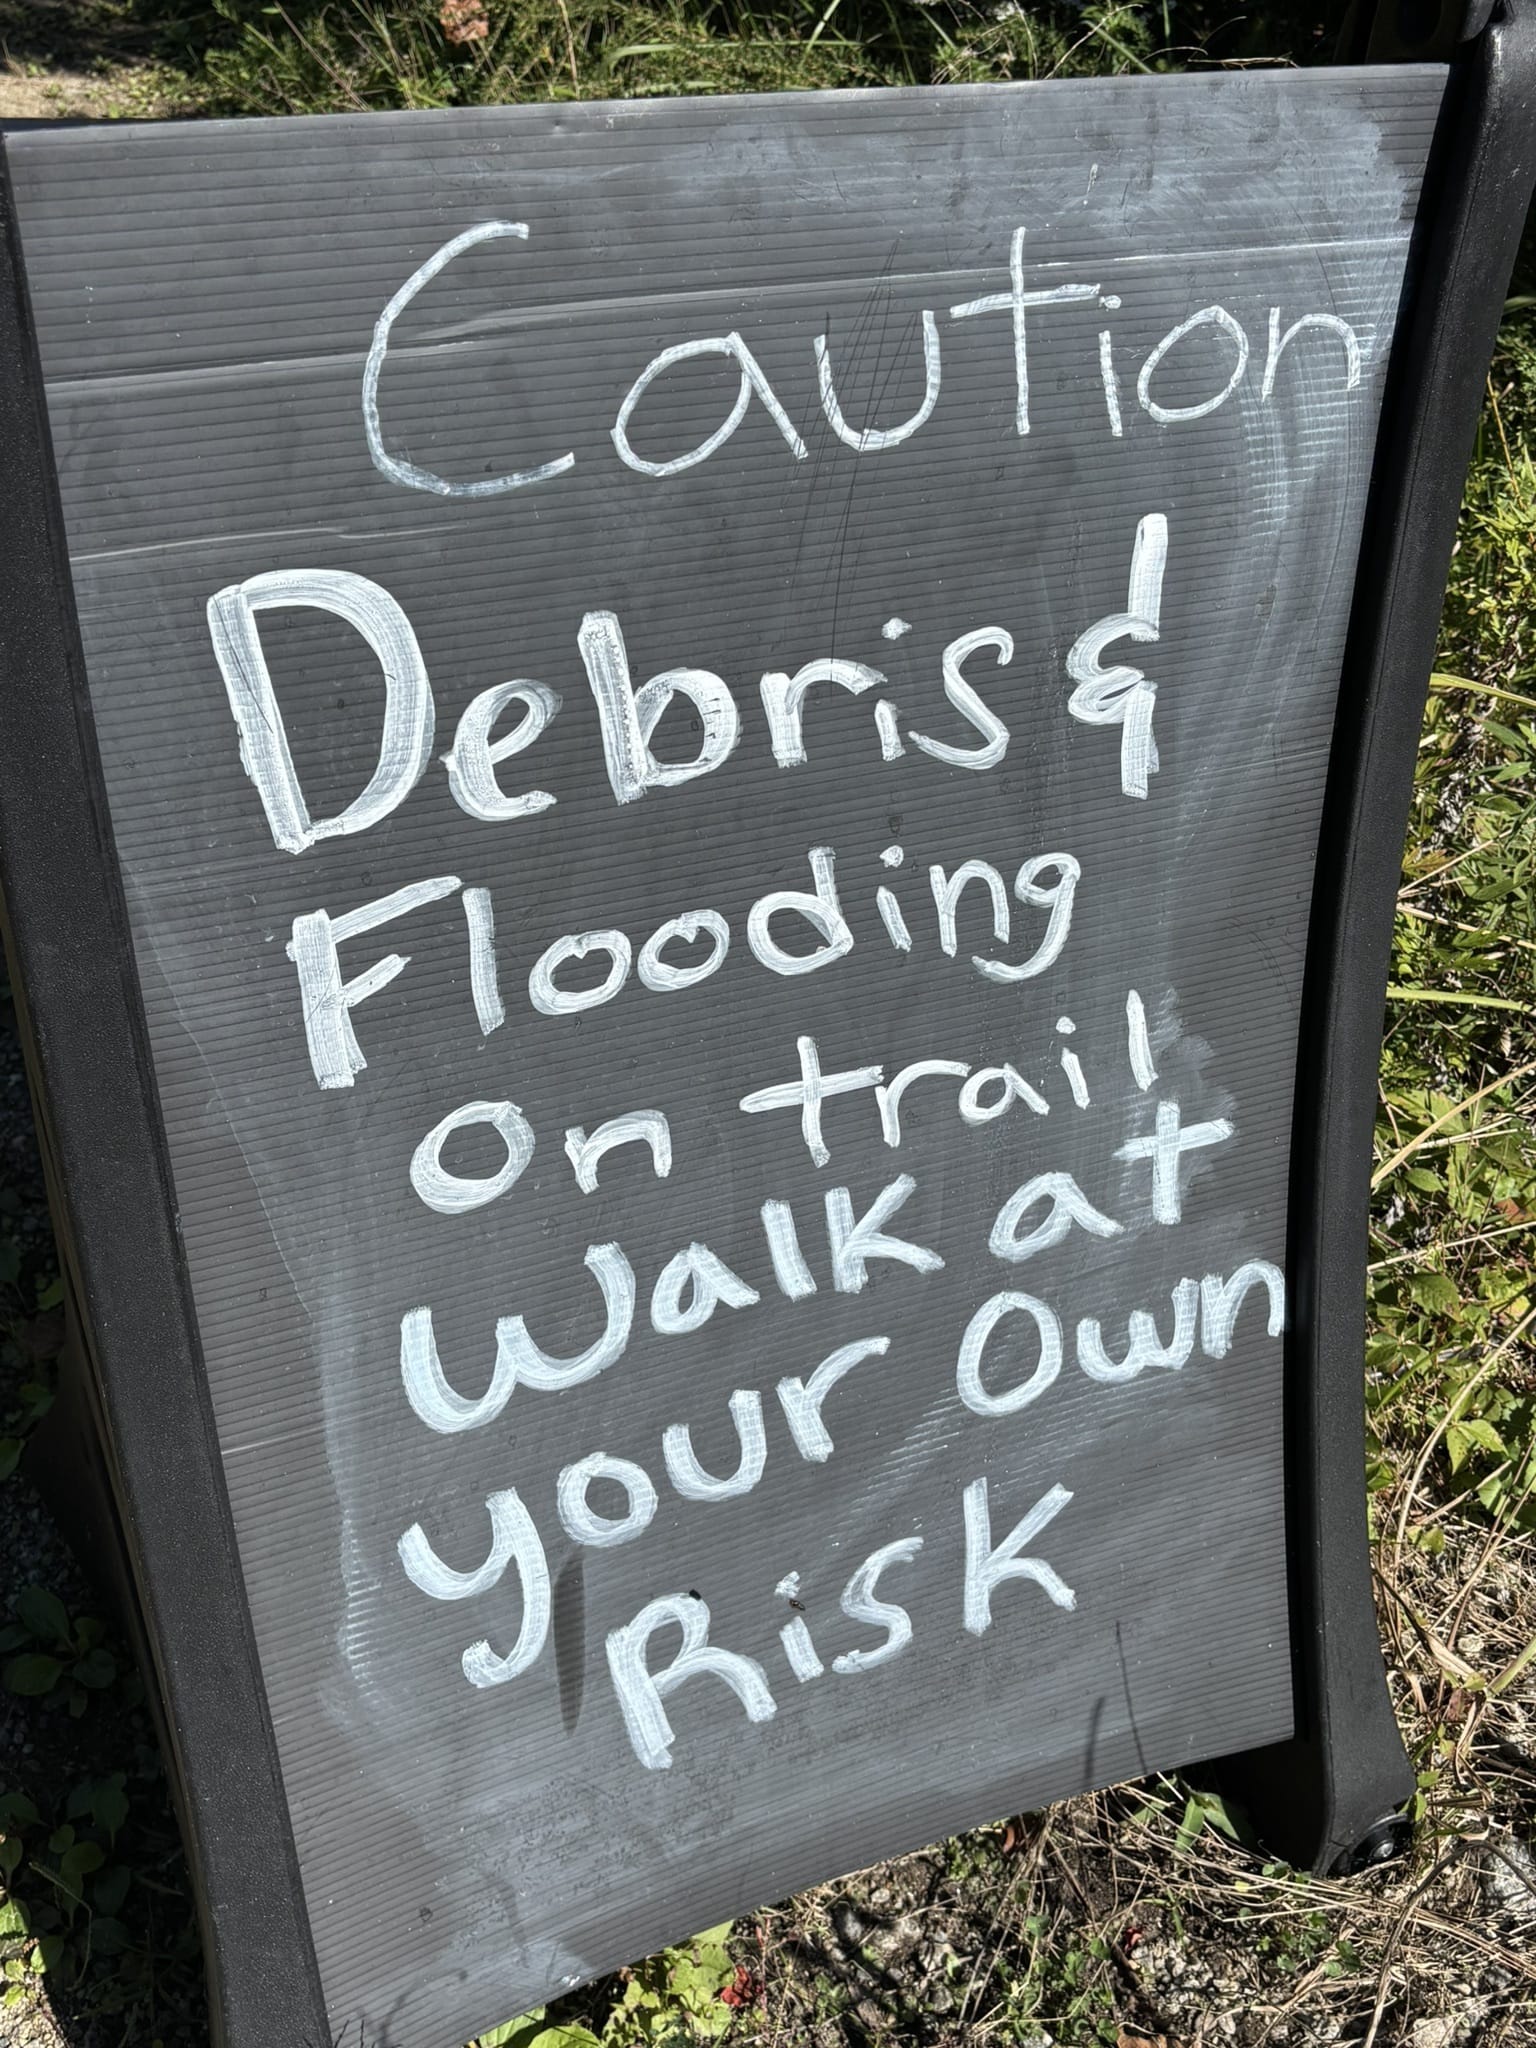 Caution
Debris &
Flooding
on trail
walk at
your own
Risk